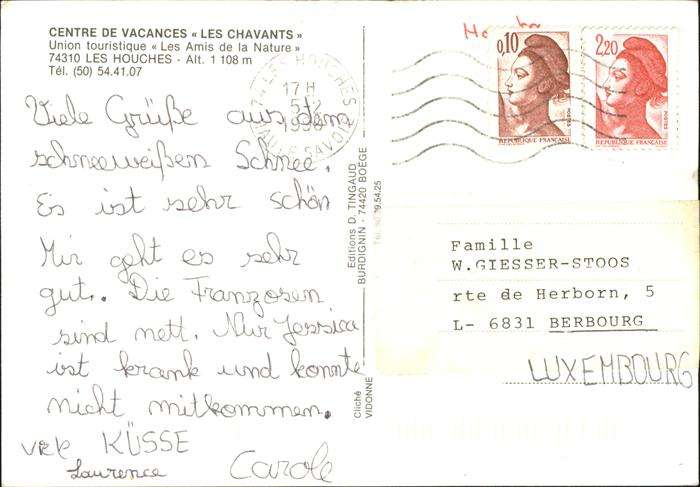 CENTRE DE VACANCES « LES CHAVANTS »
Union touristique « Les Amis de la Nature »
74310 LES HOUCHES - Alt. 1 108 m
Tél. (50) 54.41.07
Viele Grüße aus dem
schneeweißen Schnee.
Es ist sehr schön
Mir geht es sehr
gut.. Die Franzosen
sind nett. Nur Jessica
ist krank und konnte
nicht mitkommen.
KÜSSE
Laurence Carole
Editions D. TINGAUD
BURDIGNIN - 74420 BOËGE
Cliché
VIDONNE
74 LES HOUCHES
17 H
HAUTE SAVOIE
0,10
POSTES
REPUBLIQUE FRANÇAISE
2,20
POSTES
REPUBLIQUE FRANÇAISE
Famille
W.GIESSER-STOOS
rte de Herborn, 5
L- 6831 BERBOURG
LUXEMBOURG